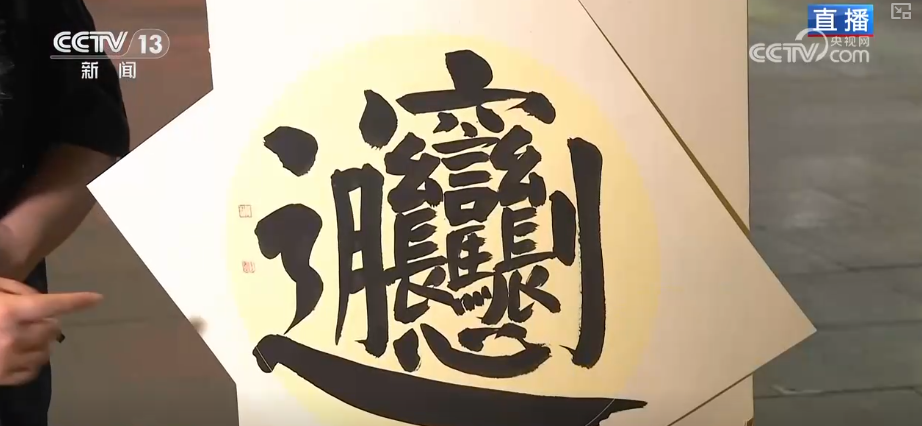 CCTV 13
新闻
直播
CCTV 央视网
com
𰻞